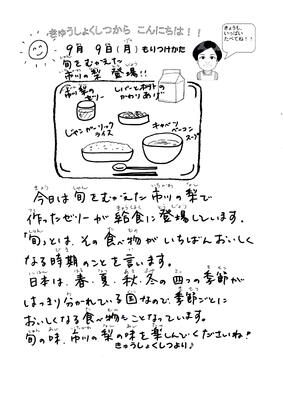 きゅうしょくしつから こんにちは！！
きょうも、
いっぱい
たべてね！！
9月 9日（月）もりつけかた
旬をむかえた
市川の梨 登場！！
市川の梨の
ゼリー
レバーとポテトの
かわりあげ
じゃこガーリック
ライス
キャベツ
ベーコン
スープ
今日は旬をむかえた市川の梨で
作ったゼリーが給食に登場しています。
「旬」とは、その食べ物がいちばんおいしく
なる時期のことを言います。
日本は、春・夏・秋・冬の四つの季節が
はっきり分かれている国なので、季節ごとに
おいしくなる食べ物もことなっています。
旬の味、市川の梨の味を楽しんでくださいね♪
きゅうしょくしつより♪